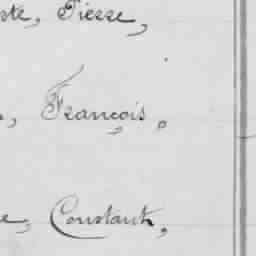 Pierre,
François.
Constant,